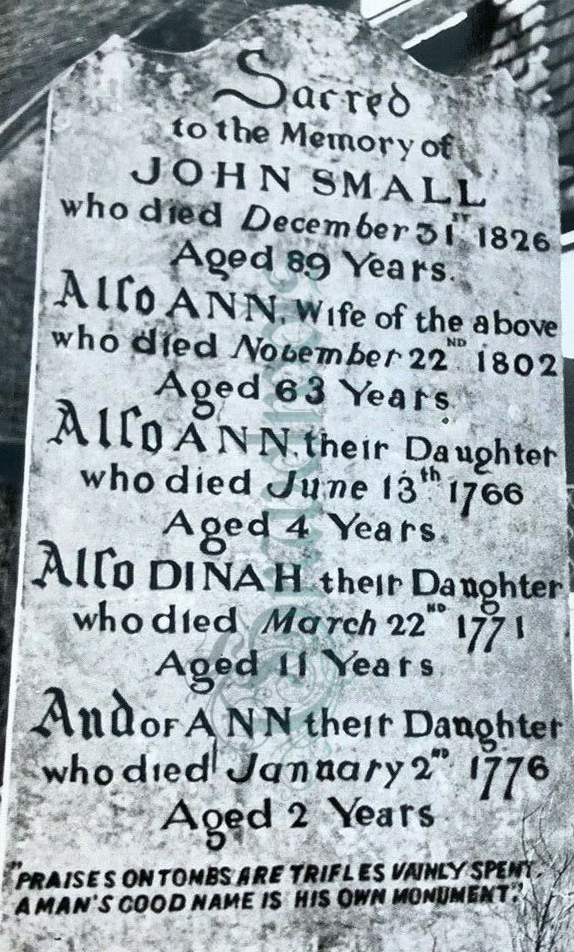 Sacred
to the Memory of
JOHN SMALL
who died December 31ST 1826
Aged 89 Years.
Alſo ANN, Wife of the above
who died November 22ND 1802
Aged 63 Years.
Alſo ANN, their Daughter
who died June 13th 1766
Aged 4 Years.
Alſo DINAH their Daughter
who died March 22ND 1771
Aged 11 Years
And of ANN their Daughter
who died January 2ND 1776
Aged 2 Years
"PRAISES ON TOMBS ARE TRIFLES VAINLY SPENT,
A MAN'S GOOD NAME IS HIS OWN MONUMENT."